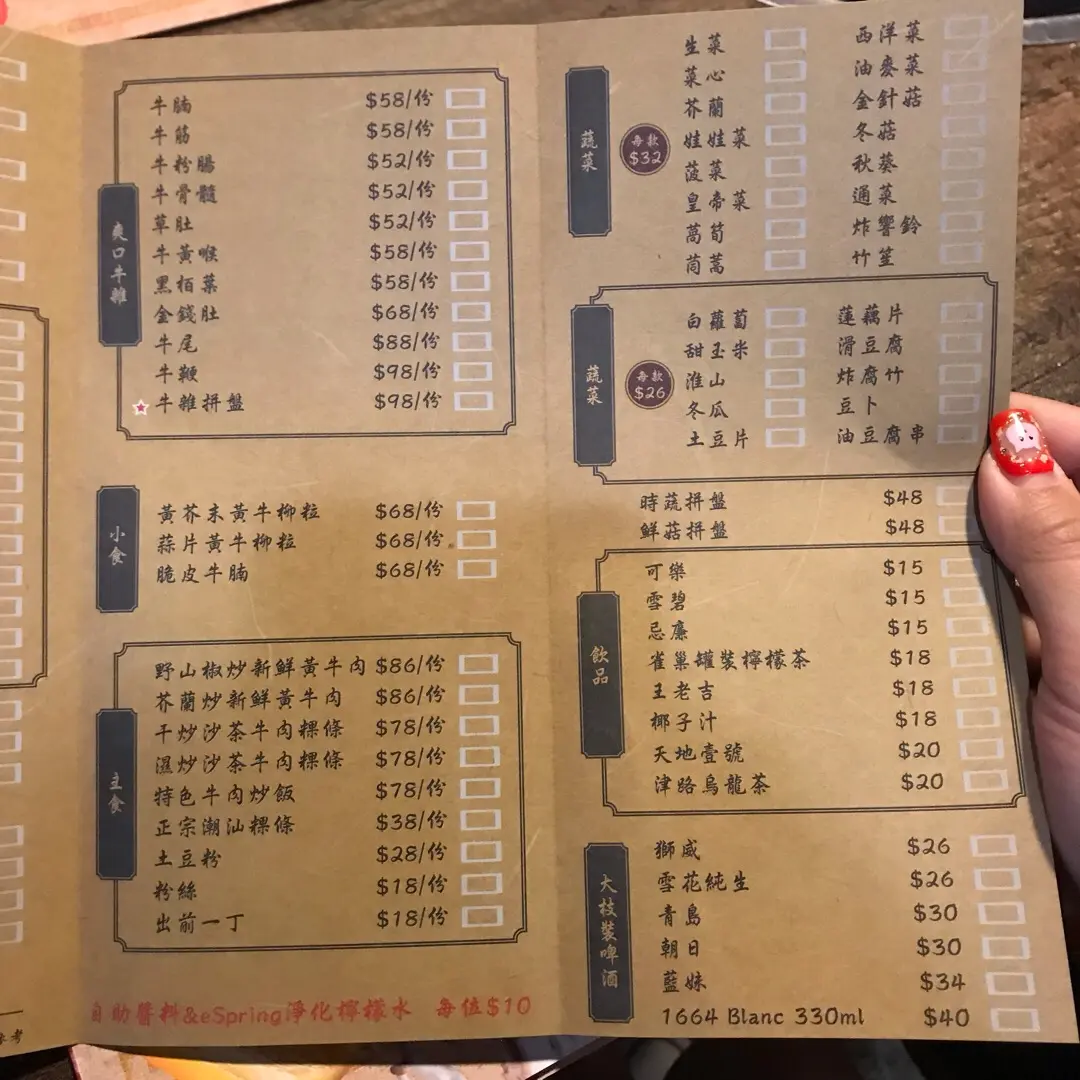 爽口牛雜
牛腩 $58/份
牛筋 $58/份
牛粉腸 $52/份
牛骨髓 $52/份
草肚 $52/份
牛黃喉 $58/份
黑栢葉 $58/份
金錢肚 $68/份
牛尾 $88/份
牛鞭 $98/份
牛雜拼盤 $98/份
小食
黃芥末黃牛柳粒 $68/份
蒜片黃牛柳粒 $68/份
脆皮牛腩 $68/份
主食
野山椒炒新鮮黃牛肉 $86/份
芥蘭炒新鮮黃牛肉 $86/份
干炒沙茶牛肉粿條 $78/份
濕炒沙茶牛肉粿條 $78/份
特色牛肉炒飯 $78/份
正宗潮汕粿條 $38/份
土豆粉 $28/份
粉絲 $18/份
出前一丁 $18/份
自助醬料&eSpring淨化檸檬水 每位$10
參考
蔬菜
每款
$32
生菜 西洋菜
菜心 油麥菜
芥蘭 金針菇
娃娃菜 冬菇
菠菜 秋葵
皇帝菜 通菜
萵筍 炸響鈴
茼蒿 竹笙
蔬菜
每款
$26
白蘿蔔 蓮藕片
甜玉米 滑豆腐
淮山 炸腐竹
冬瓜 豆卜
土豆片 油豆腐串
時蔬拼盤 $48
鮮菇拼盤 $48
飲品
可樂 $15
雪碧 $15
忌廉 $15
雀巢罐裝檸檬茶 $18
王老吉 $18
椰子汁 $18
天地壹號 $20
津路烏龍茶 $20
大枝裝啤酒
獅威 $26
雪花純生 $26
青島 $30
朝日 $30
藍妹 $34
1664 Blanc 330ml $40